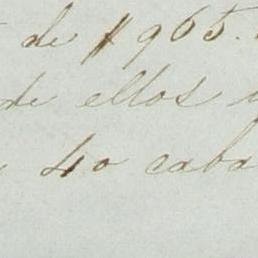 de $ 965.
de ellos
40 caba